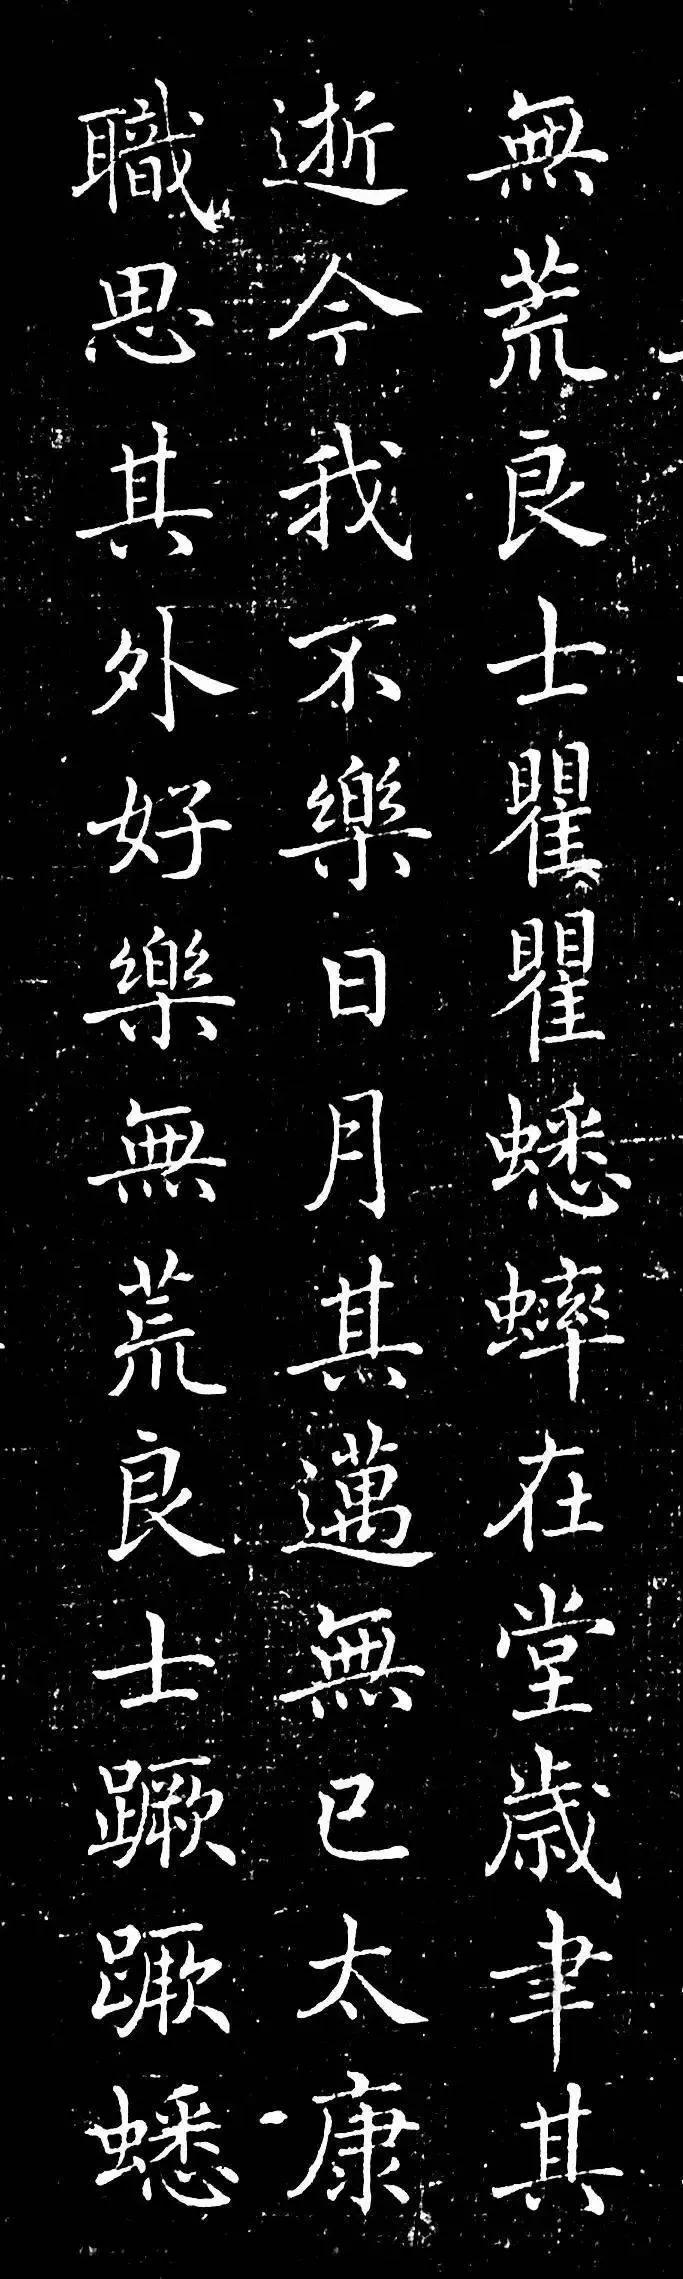 無荒良士瞿瞿蟋蟀在堂歳聿其
逝今我不樂日月其邁無已太康
職思其外好樂無荒良士蹶蹶蟋